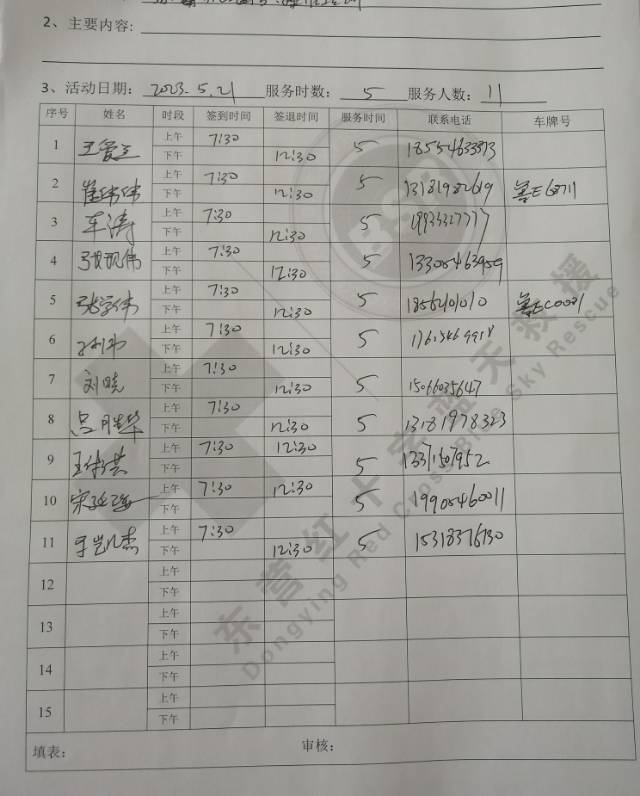 2、主要内容:
3、活动日期: 2023.5.21 服务时数: 5 服务人数: 11
序号 姓名 时段 签到时间 签退时间 服务时间 联系电话 车牌号
1 上午 7:30
王爱玉 5 18554633873
下午 12:30
2 上午 7:30
崔纬伟 5 13181982619 鲁E68711
下午 12:30
3 上午 7:30
车涛 5
下午 12:30
4 上午 7:30
伟 5 13305463959
下午 12:30
5 上午 7:30
张学伟 5 鲁EC0021
下午 12:30
6 上午 7:30
5
下午 12:30
7 上午 7:30
刘晓 5 15066035647
下午 12:30
8 上午 7:30
吕胜华 5 13181978323
下午 12:30
9 上午 7:30 12:30
王 5 13371507952
下午
10 上午 7:30 12:30
宋延 5 19905460011
下午
11 上午 7:30
于凯杰 5 15318376130
下午 12:30
12 上午
下午
13 上午
下午
14 上午
下午
15 上午
下午
填表: 审核:
东营红十字蓝天救援
Dongying Red Cross Blue Sky Rescue